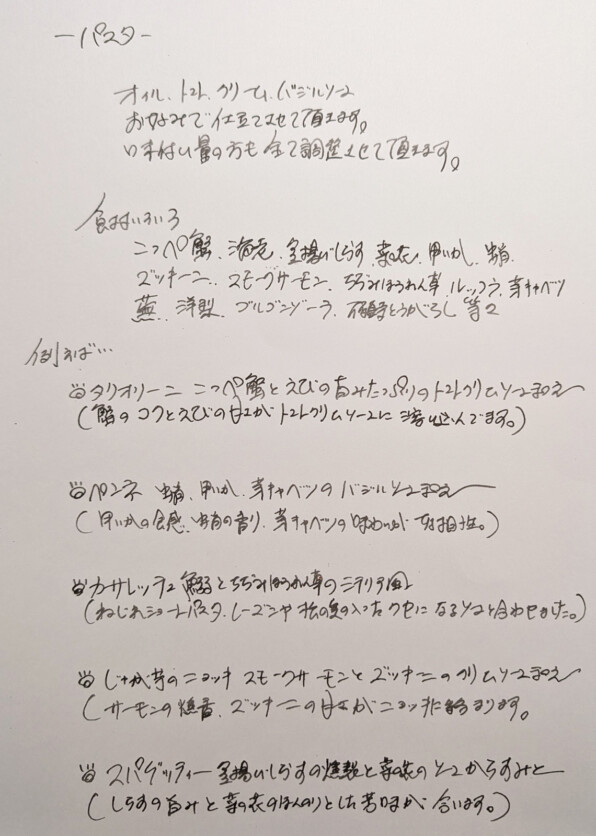 ーパスタ－
オイル、トマト、クリーム、バジルソース
お好みで仕立てさせて頂きます。
口味付け、量の方も全て調整させて頂きます。
食材いろいろ
こっぺ蟹、海老、釜揚げしらす、菜の花、甲いか、蛸
ズッキーニ、スモークサーモン、ちぢみほうれん草、ルッコラ、芽キャベツ
蕪、洋梨、ゴルゴンゾーラ、とうがらし等々
例えば…
タリオリーニ こっぺ蟹とえびの旨みたっぷりのトマトクリームソース
(蟹のコクとえびの甘さがトマトクリームソースに溶け込んでます。)
ペンネ 蛸、甲いか、芽キャベツのバジルソース
(甲いかの食感、蛸の香り、芽キャベツの味わいが好相性。)
カサレッチェ 鰯とちぢみほうれん草のシチリア風
(ねじれショートパスタ、レーズンや松の実の入ったクセになるソースと合わせました。)
じゃが芋のニョッキ スモークサーモンとズッキーニのクリームソース
(サーモンの燻香、ズッキーニの甘さがニョッキに絡まります。
スパゲッティー 釜揚げしらすの燻製と菜の花のソース からすみと
(しらすの旨みと菜の花のほんのりとした苦味が合います。)